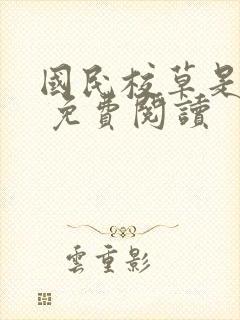 國民校草是
免費閱讀
雲重影